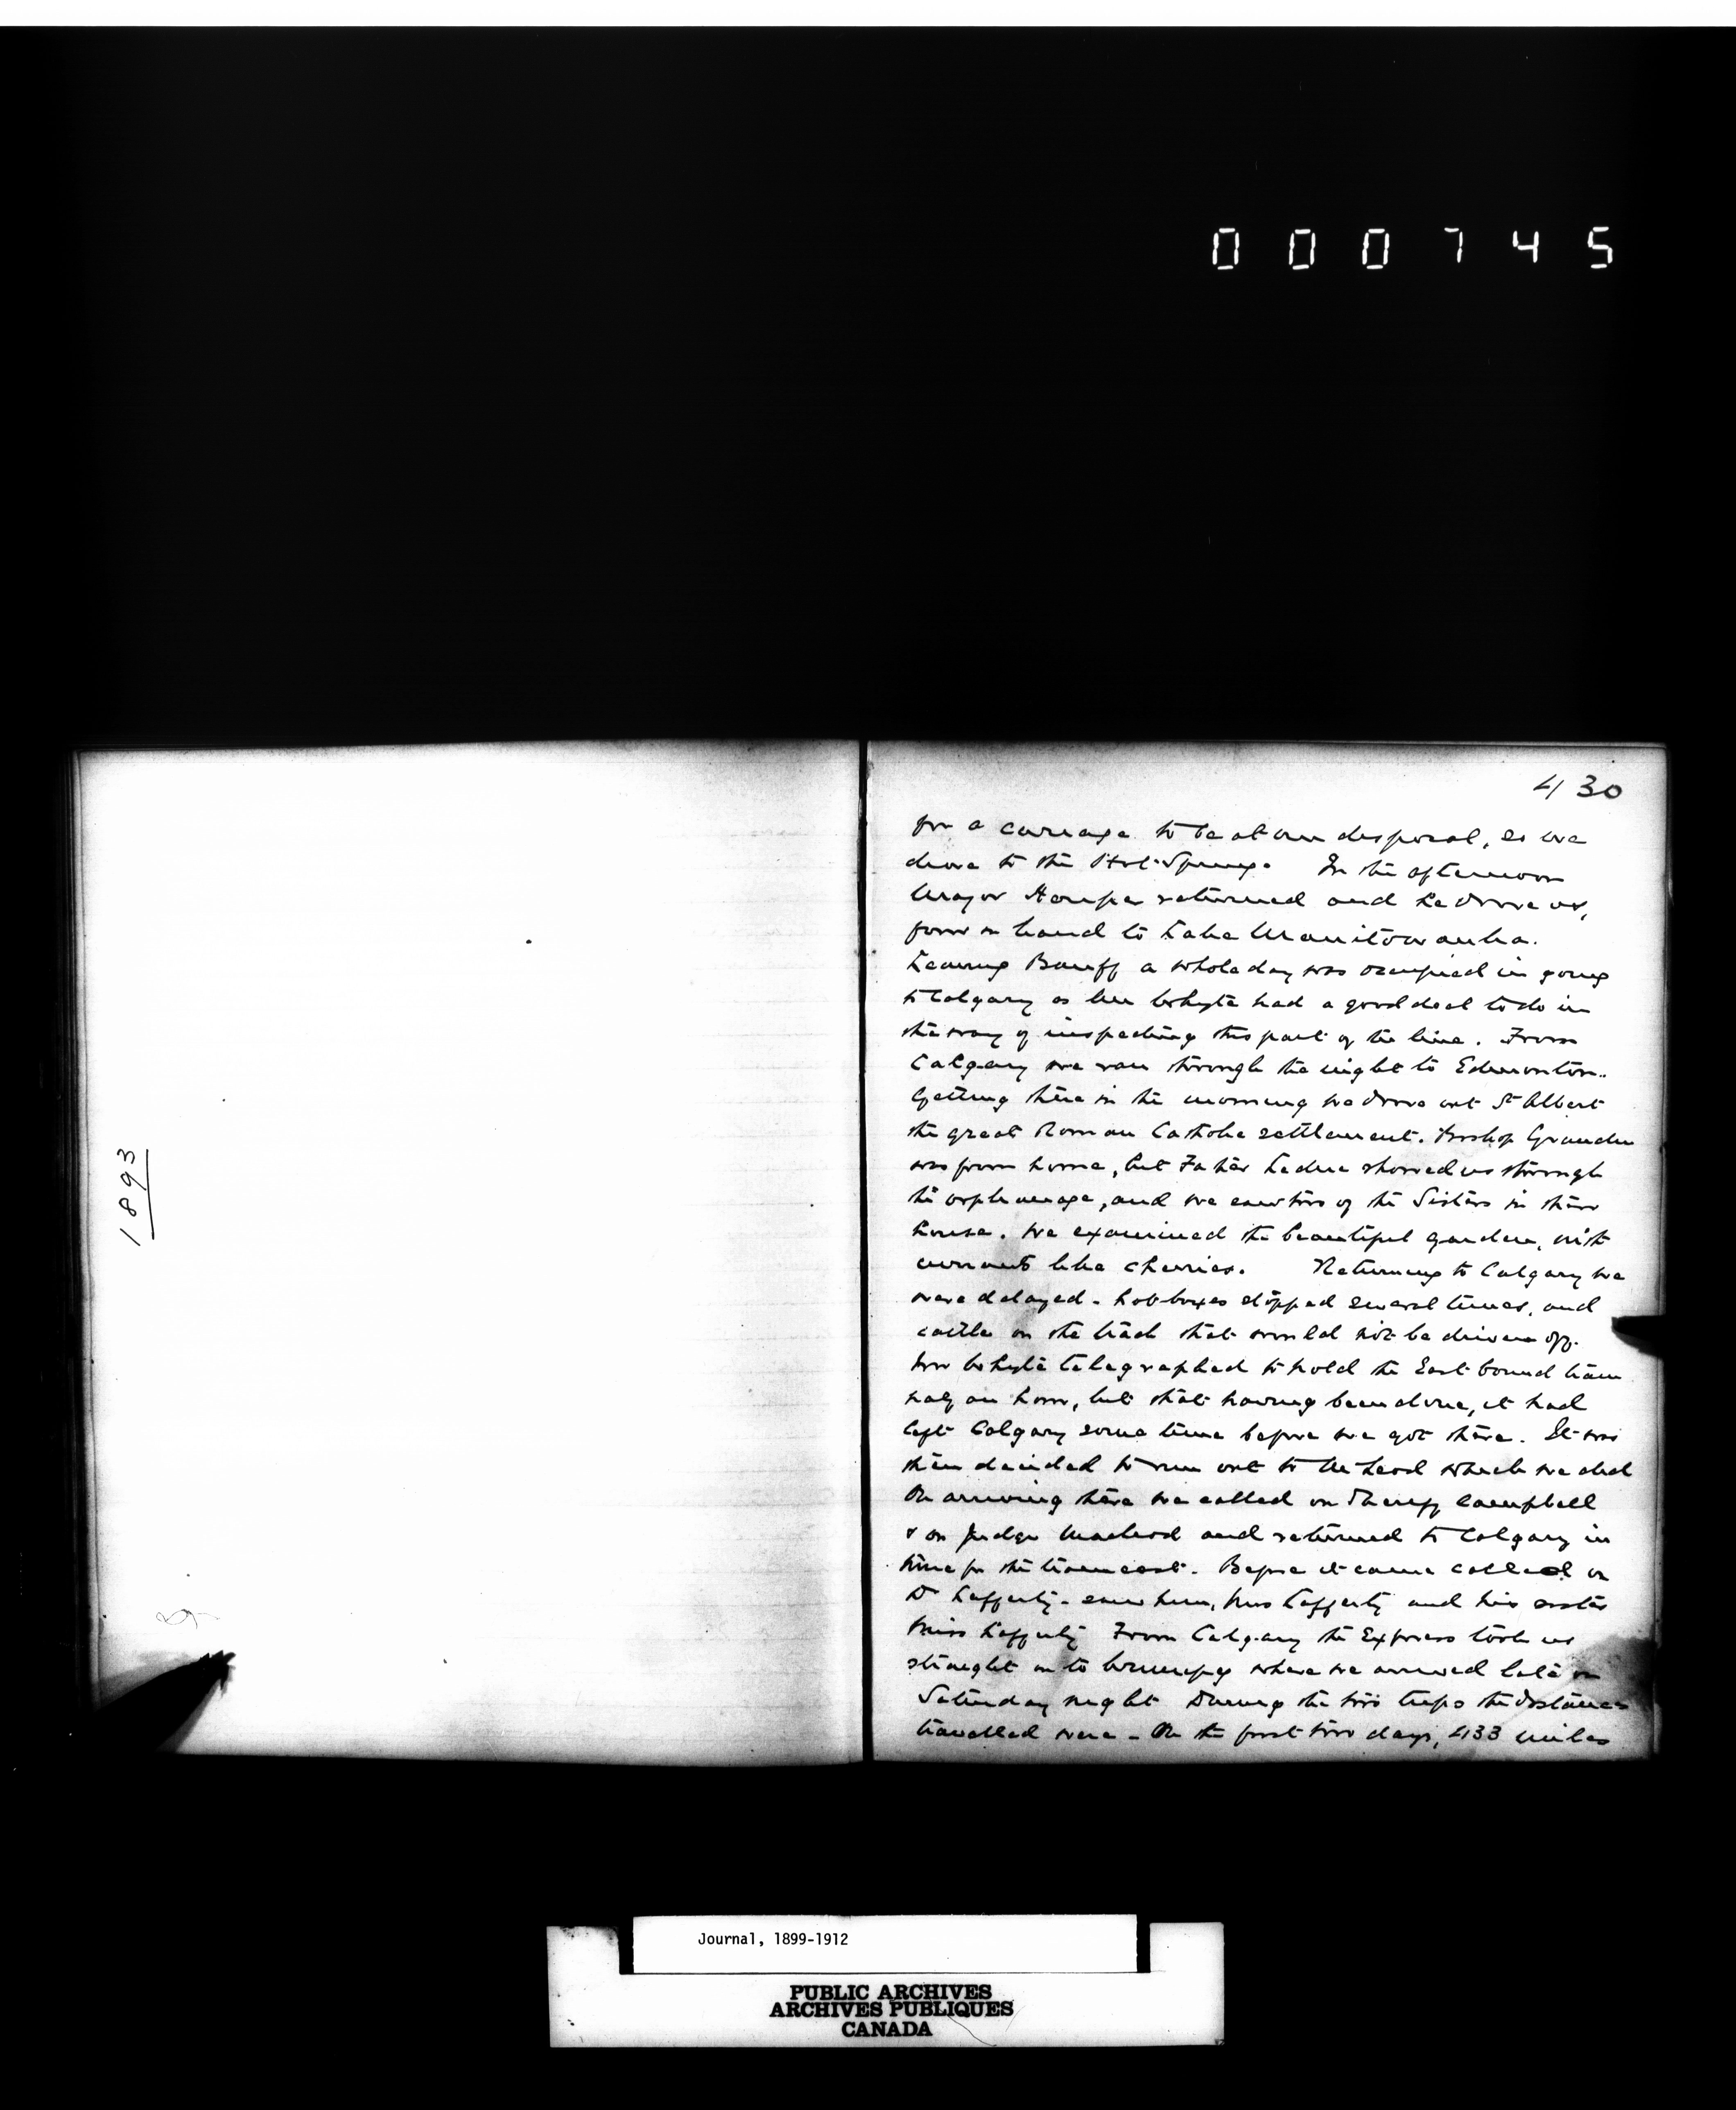 000745
430
1893
for a carriage to be at our disposal, so we
drove to the Hot Springs. In the afternoon
Major Harper returned and he drove us,
four in hand to Lake Manitowanka.
Leaving Banff a whole day was occupied in going
to Calgary as Mr Whyte had a good deal to do in
the way of inspecting this part of the line. From
Calgary we ran through the night to Edmonton.
Getting there in the morning we drove out St Albert
the great Roman Catholic settlement. Bishop Grandin
was from home, but Father Leduc showed us through
the orphanage, and we saw two of the Sisters in their
house. We examined the beautiful garden, with
currants like cherries. Returning to Calgary we
were delayed - hot-boxes stopped several times, and
cattle on the track that would not be driven off.
Mr Whyte telegraphed to hold the East bound train
half an hour, but that having been done, it had
left Calgary some time before we got there. It was
then decided to run out to McLeod which we did
On arriving there we called on Sheriff Campbell
& on Judge Macleod and returned to Calgary in
time for the train east. Before it came called on
Dr Lafferty - saw him, Mrs Lafferty and his sister
Miss Lafferty From Calgary the Express took us
straight on to Winnipeg where we arrived late on
Saturday night During the two trips the distances
travelled were - On the first two days, 433 miles
Journal, 1899-1912
PUBLIC ARCHIVES
ARCHIVES PUBLIQUES
CANADA